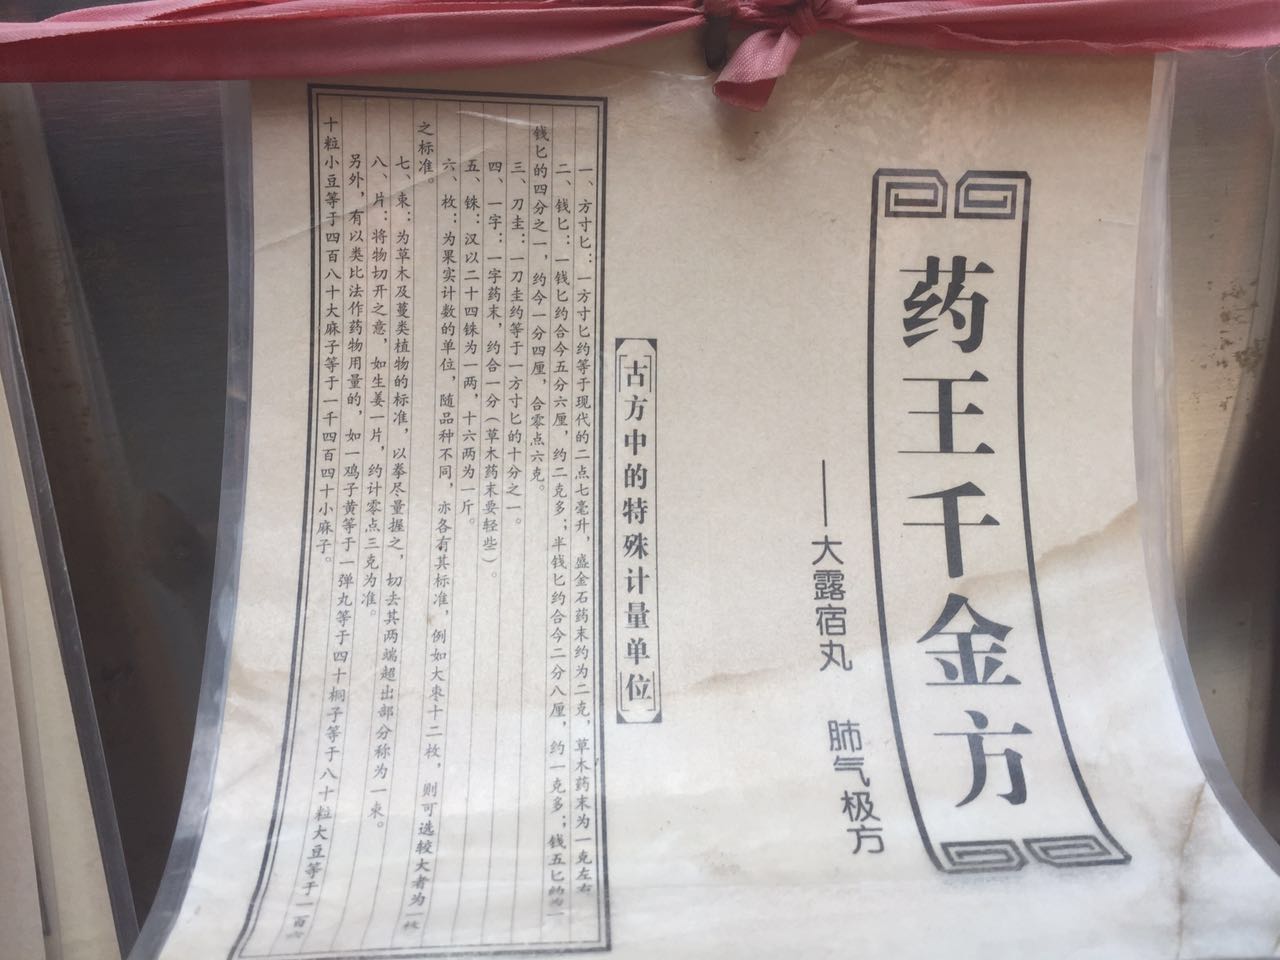 药王千金方
——大露宿丸 肺气极方
古方中的特殊计量单位
一、方寸匕：一方寸匕约等于现代的二点七毫升，盛金石药末约为二克，草木药末为一克左右
二、钱匕：一钱匕约合今五分六厘，约二克多；半钱匕约合今二分八厘，约一克多；钱五匕约为一
钱匕的四分之一，约今一分四厘，合零点六克。
三、刀圭：一刀圭约等于一方寸匕的十分之一。
四、一字：一字药末，约合一分（草木药末要轻些）。
五、铢：汉以二十四铢为一两，十六两为一斤。
六、枚：为果实计数的单位，随品种不同，亦各有其标准，例如大枣十二枚，则可选较大者为一枚
之标准。
七、束：为草木及蔓类植物的标准，以拳尽量握之，切去其两端超出部分称为一束。
八、片：将物切开之意，如生姜一片，约计零点三克为准。
另外，有以类比法作药物用量的，如一鸡子黄等于一弹丸等于四十桐子等于八十粒大豆等于一百六
十粒小豆等于四百八十大麻子等于一千四百四十小麻子。